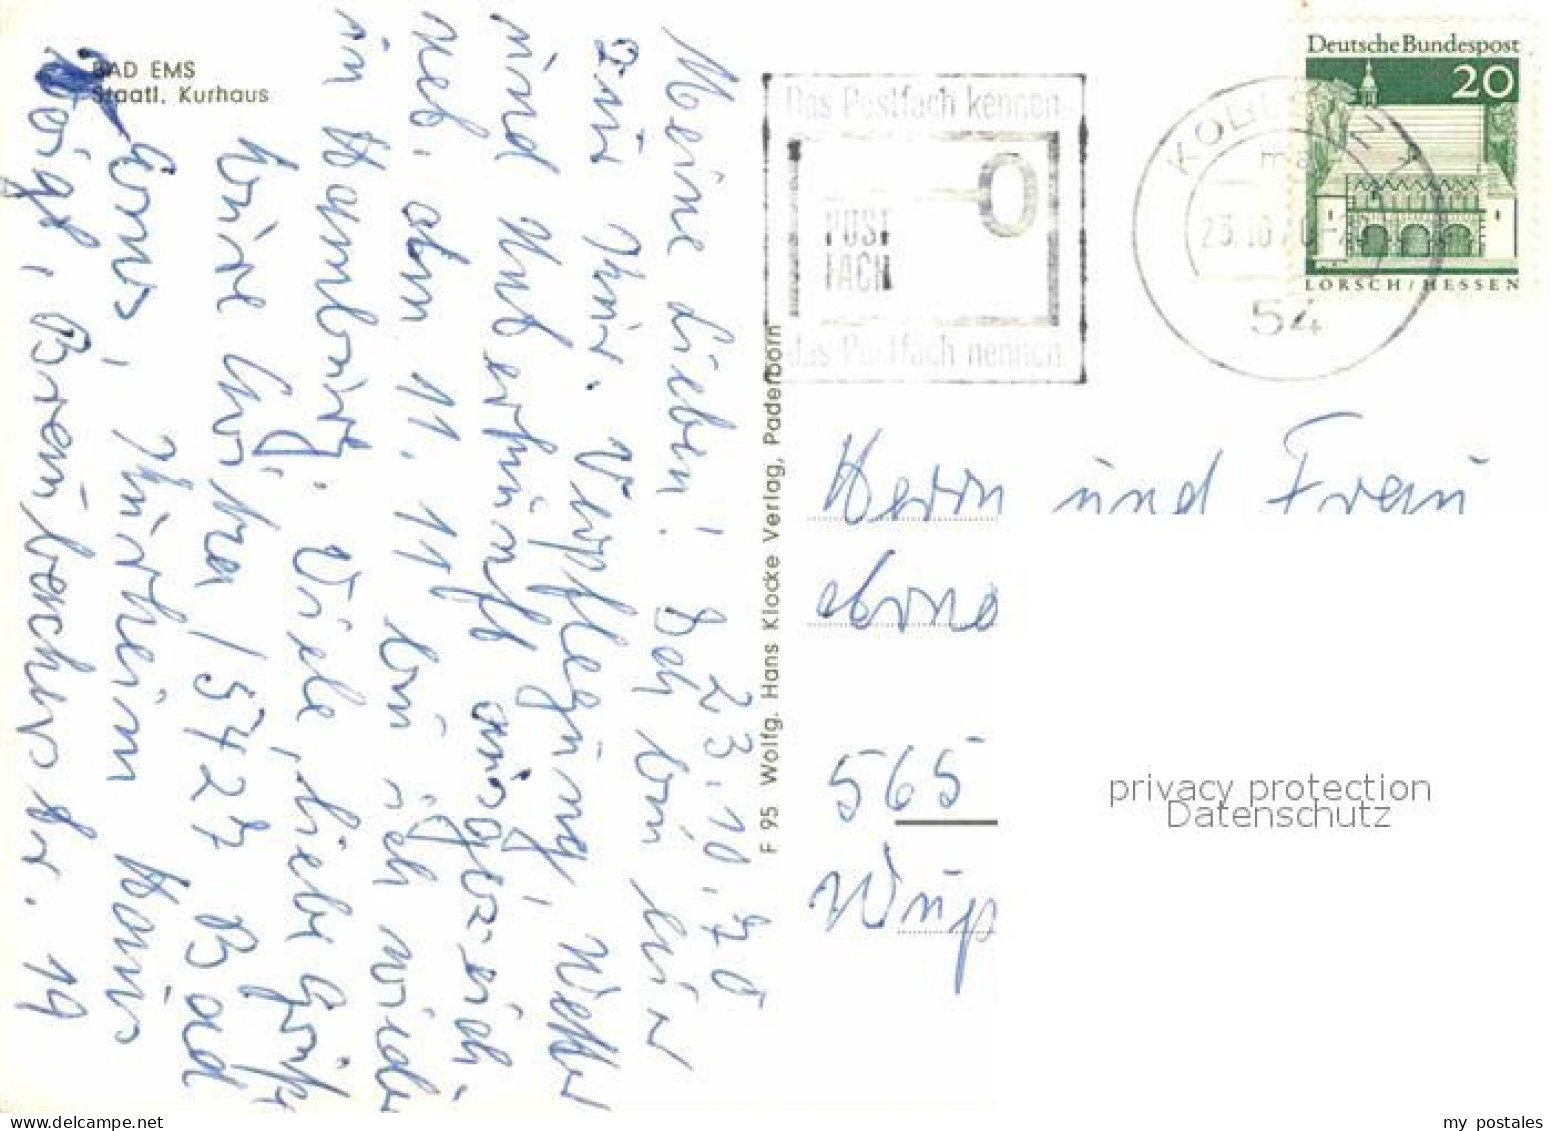 BAD EMS
Staatl. Kurhaus
23.10.70
Meine Lieben! bin hier
zur Kur. Verpflegung, Wetter
und Unterkunft ausgezeich-
net. Am 11. 11 bin ich wieder
in Hamburg. Viele liebe Grüße
Eure Christra / 5427 Bad
Ems, Kurheim Haus
Bräunbacherstr. 19
F 95 Wolfg. Hans Klocke Verlag, Paderborn
Das Postfach kennen
POST
FACH
das Postfach nennen
KOBLENZ 1
23.10.70
54
Deutsche Bundespost
20
LORSCH/HESSEN
Herrn und Frau
565
Wup
privacy protection
Datenschutz
my postales